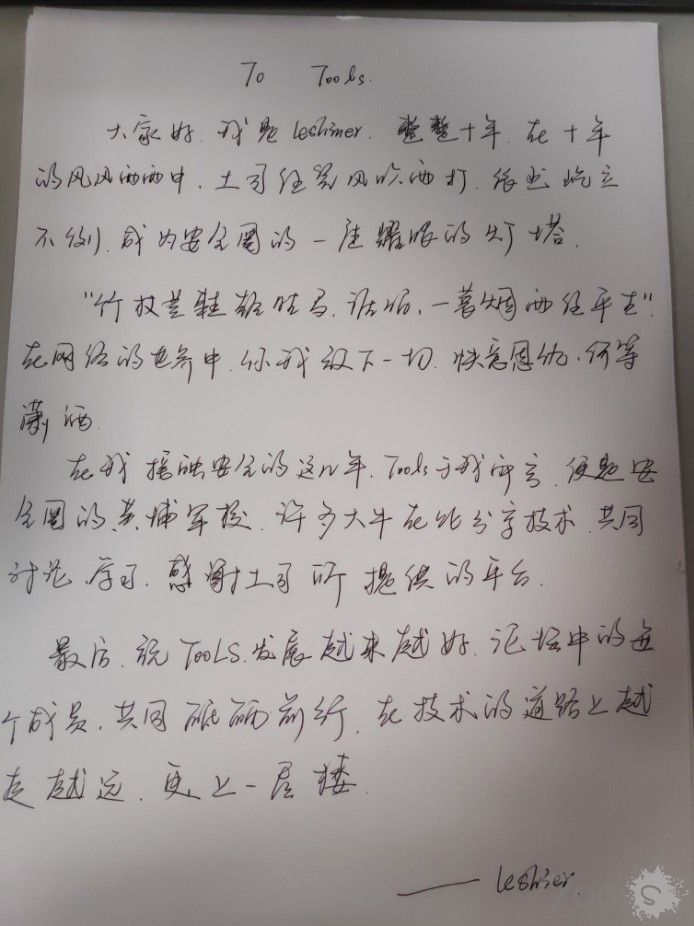 To Tools.
大家好,我是leshiner. 整整十年,在十年
的风风雨雨中,土司经觉风吹雨打,依然屹立
不倒,成为安全圈的一座耀眼的灯塔.
"竹杖芒鞋轻胜马,谁怕,一蓑烟雨任平生".
在网络的世界中,你我放下一切,快意恩仇,何等
潇洒.
在我接触安全的这几年,Tools于我所言,便是安
全圈的黄埔军校,许多大牛在此分享技术,共同
讨论、学习,感谢土司所提供的平台.
最后,祝TOOLS发展越来越好,论坛中的每
个成员,共同砥砺前行,在技术的道路上越
走越远,更上一层楼.
—— leshiner.